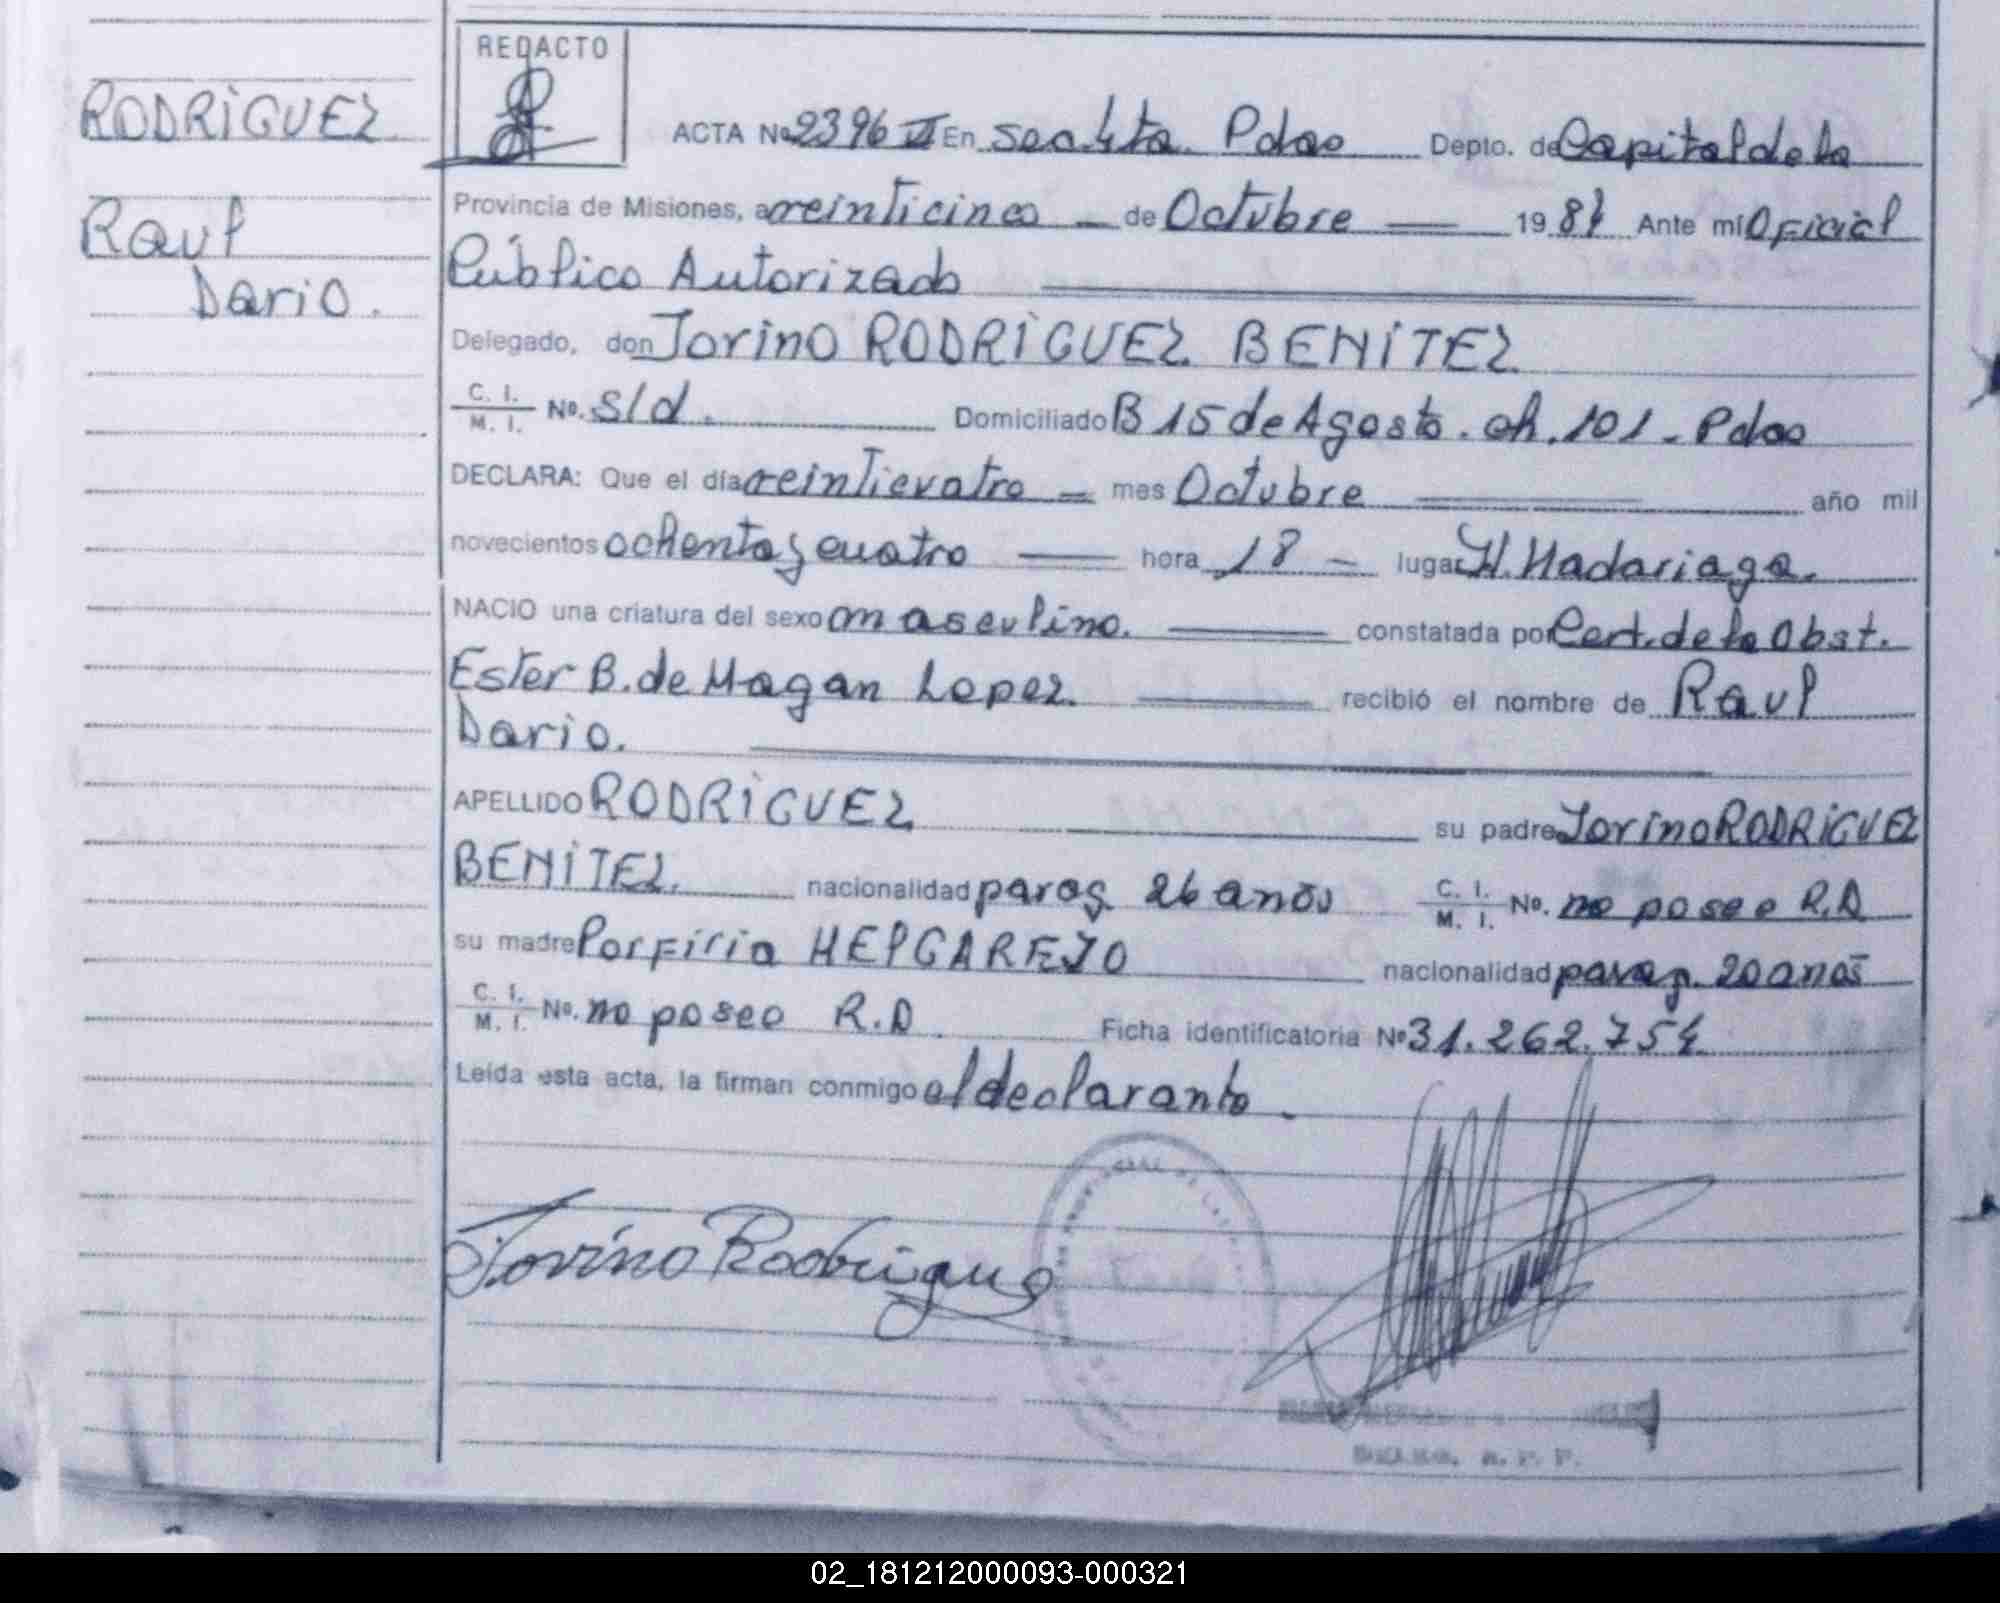 RODRIGUEZ
Raul
Dario.
REDACTO
ACTA Nº 2396 II En sec. 4ta. Pdas Depto. de Capital de la
Provincia de Misiones, a veinticinco de Octubre 1984 Ante mí Oficial
Público Autorizado
Delegado, don Jovino RODRIGUEZ BENITEZ
C. I.
M. I. Nº. s/d. Domiciliado B 15 de Agosto. ch. 101 - Pdas
DECLARA: Que el día veinticuatro mes Octubre año mil
novecientos ochenta y cuatro hora 18 lugar H. Madariaga.
NACIO una criatura del sexo masculino. constatada por Cert. de la Obst.
Ester B. de Magan Lopez. recibió el nombre de Raul
Dario.
APELLIDO RODRIGUEZ su padre Jovino RODRIGUEZ
BENITEZ. nacionalidad parag. 26 años C. I.
M. I. Nº. no posee R.D
su madre Porfiria MELGAREJO nacionalidad parag. 20 años
C. I.
M. I. Nº. no posee R.D Ficha identificatoria Nº 31.262.754
Leída esta acta, la firman conmigo el declarante.
Jovino Rodriguez
02_181212000093-000321